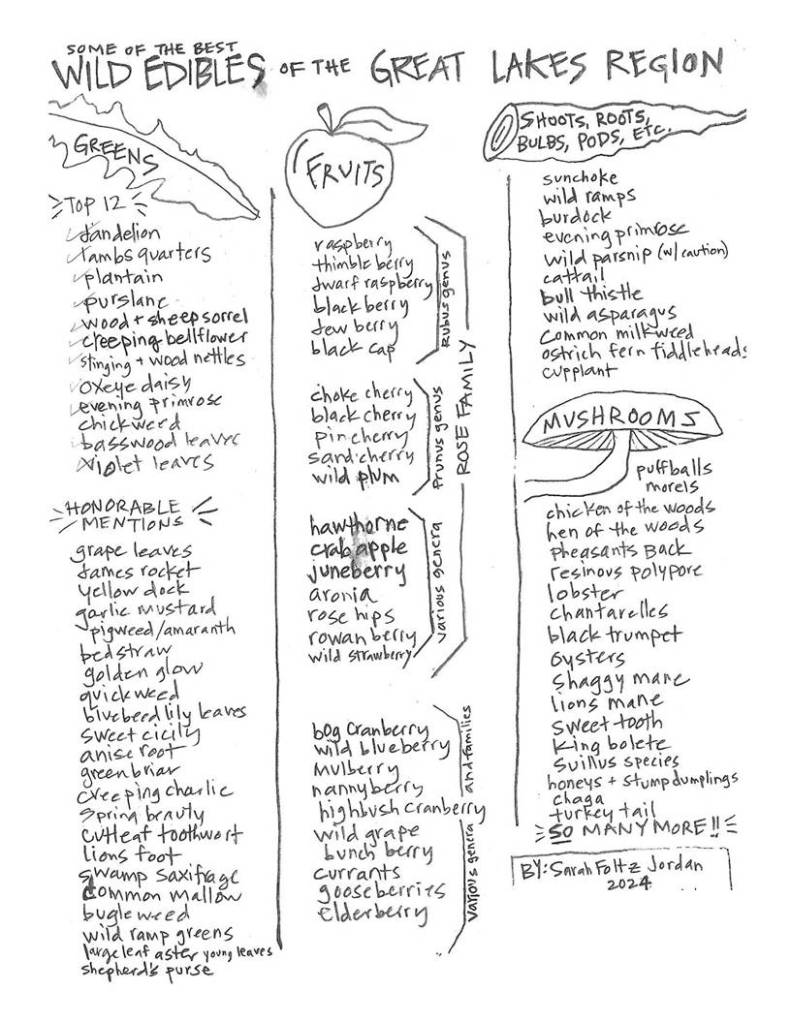 SOME OF THE BEST
WILD EDIBLES OF THE GREAT LAKES REGION
GREENS
TOP 12
dandelion
lambs quarters
plantain
purslane
wood + sheep sorrel
creeping bellflower
stinging + wood nettles
oxeye daisy
evening primrose
chickweed
basswood leaves
violet leaves
HONORABLE
MENTIONS
grape leaves
dames rocket
yellow dock
garlic mustard
pigweed/amaranth
bedstraw
golden glow
quickweed
bluebeed lily leaves
sweet cicily
anise root
greenbriar
creeping charlie
spring beauty
cutleaf toothwort
lions foot
swamp saxifrage
common mallow
bugleweed
wild ramp greens
large leaf aster young leaves
shepherd's purse
FRUITS
raspberry
thimble berry
dwarf raspberry
black berry
dew berry
black cap
Rubus genus
choke cherry
black cherry
pin cherry
sand cherry
wild plum
Prunus genus
hawthorne
crab apple
juneberry
aronia
rose hips
rowan berry
wild strawberry
various genera
ROSE FAMILY
bog cranberry
wild blueberry
mulberry
nannyberry
highbush cranberry
wild grape
bunch berry
currants
gooseberries
elderberry
various genera and families
SHOOTS, ROOTS,
BULBS, PODS, ETC.
sunchoke
wild ramps
burdock
evening primrose
wild parsnip (w/ caution)
cattail
bull thistle
wild asparagus
common milkweed
ostrich fern fiddleheads
cupplant
MUSHROOMS
puffballs
morels
chicken of the woods
hen of the woods
pheasants back
resinous polypore
lobster
chantarelles
black trumpet
oysters
shaggy mane
lions mane
sweet tooth
king bolete
suillus species
honeys + stump dumplings
chaga
turkey tail
SO MANY MORE!!
BY: Sarah Foltz Jordan
2024